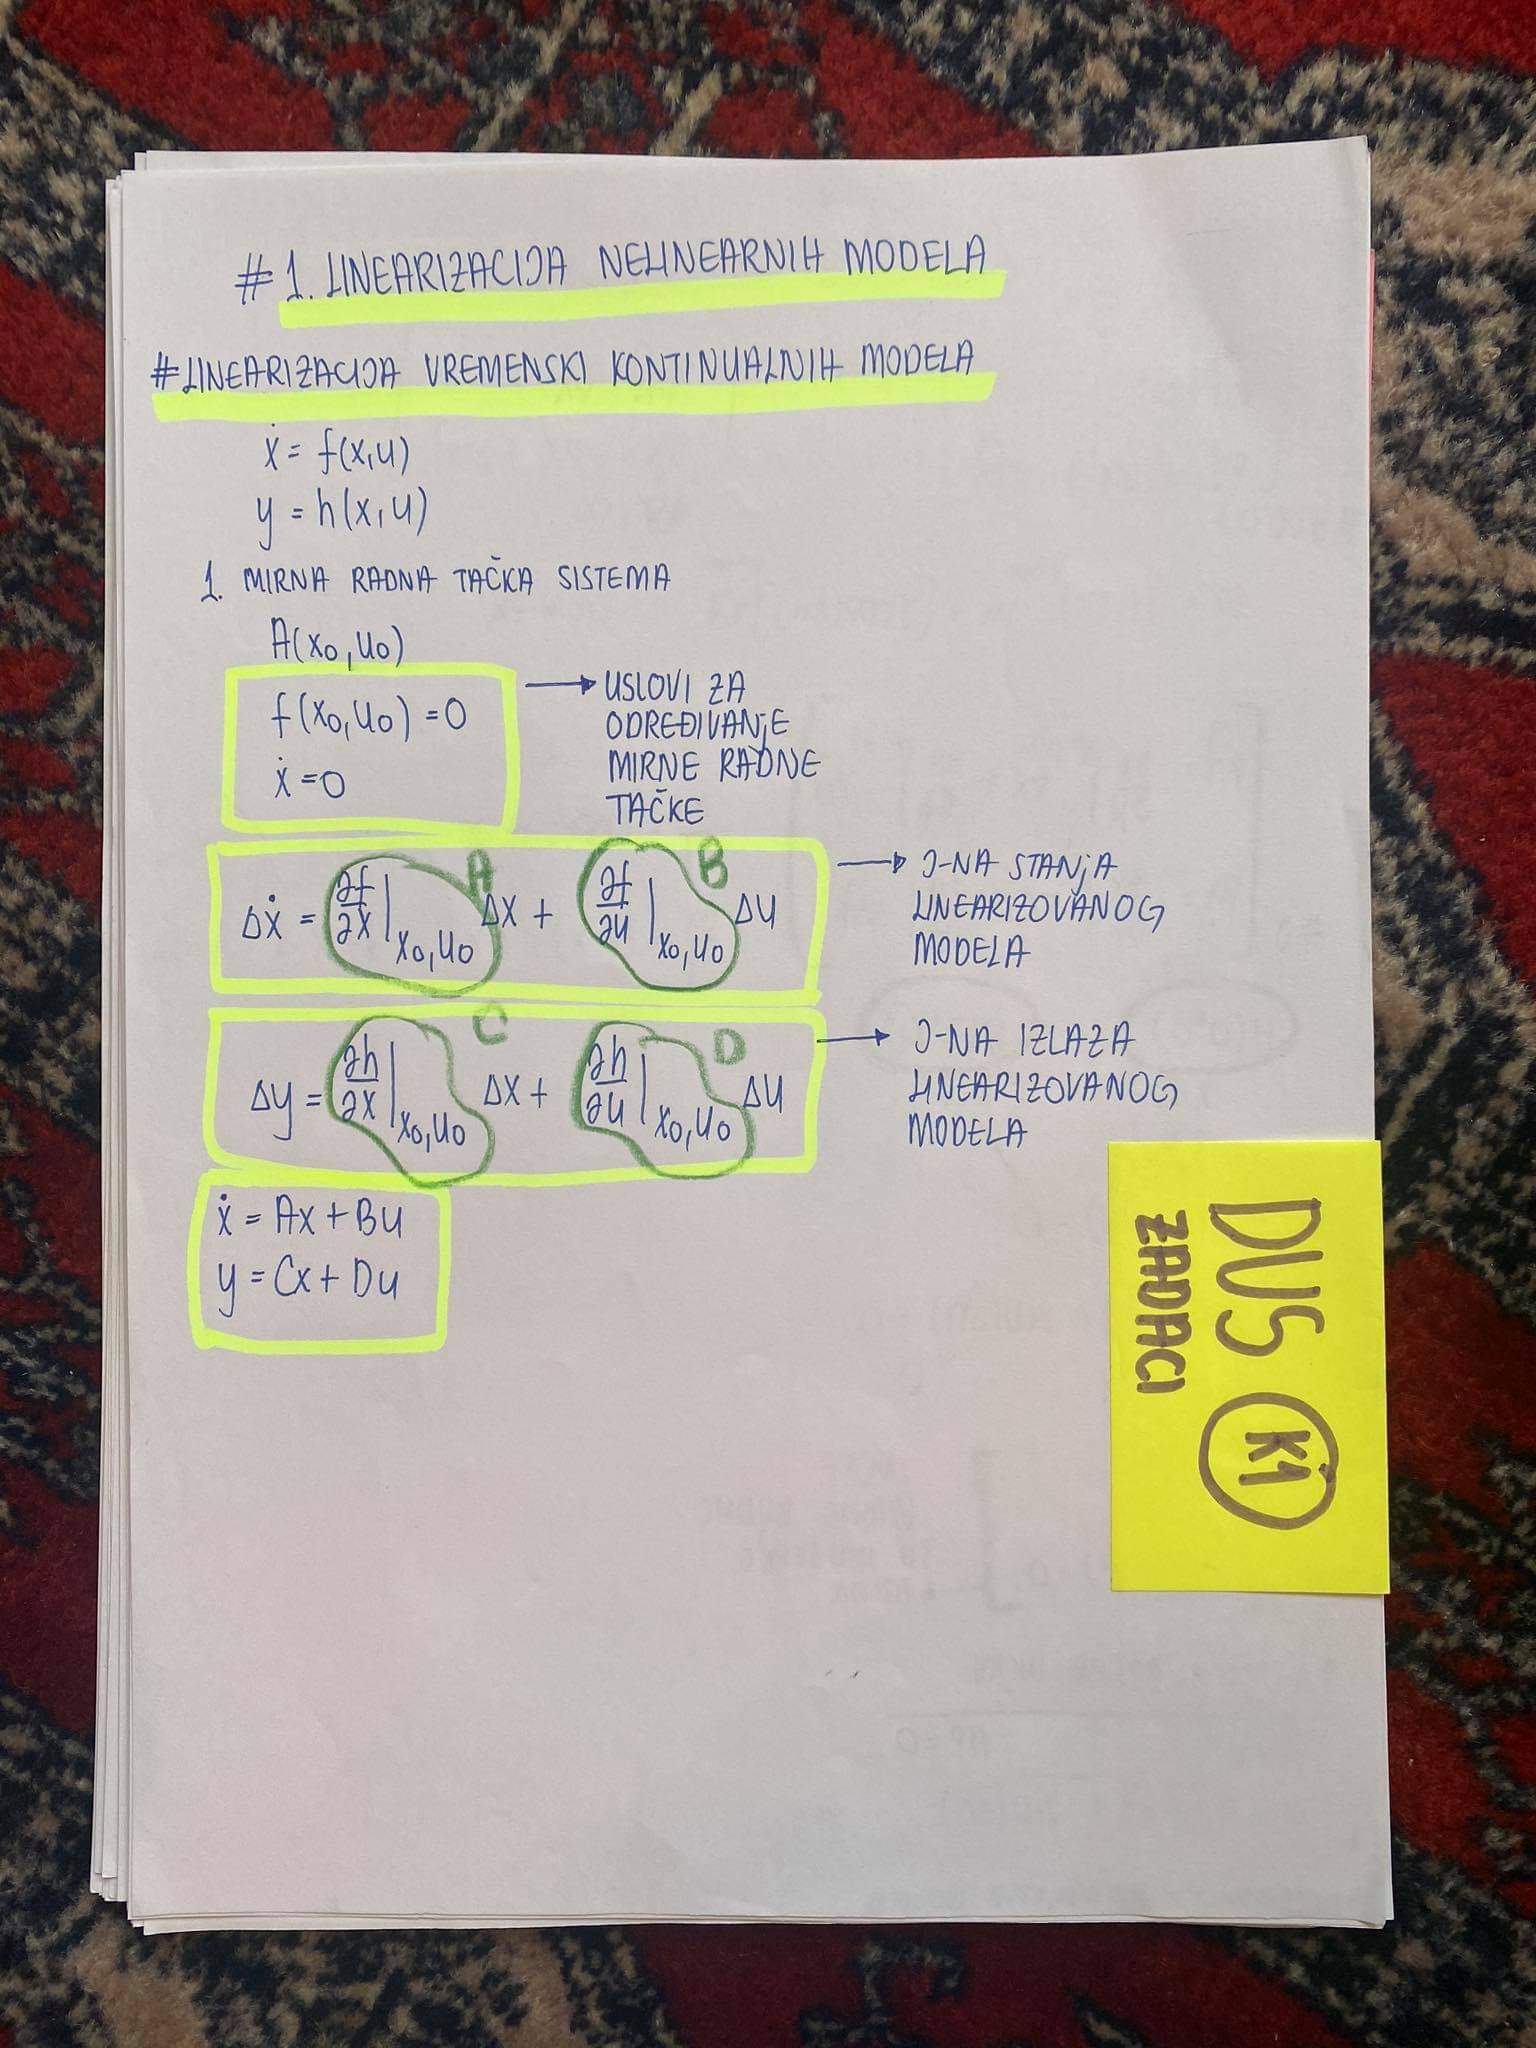 #1. LINEARIZACIJA NELINEARNIH MODELA
#LINEARIZACIJA VREMENSKI KONTINUALNIH MODELA
ẋ = f(x,u)
y = h(x,u)
1. MIRNA RADNA TAČKA SISTEMA
A(x₀,u₀)
f(x₀,u₀) = 0
ẋ = 0
→ USLOVI ZA
ODREĐIVANjE
MIRNE RADNE
TAČKE
Δẋ = ∂f/∂x|x₀,u₀ Δx + ∂f/∂u|x₀,u₀ Δu
A
B
→ J-NA STANjA
LINEARIZOVANOG
MODELA
Δy = ∂h/∂x|x₀,u₀ Δx + ∂h/∂u|x₀,u₀ Δu
C
D
→ J-NA IZLAZA
LINEARIZOVANOG
MODELA
ẋ = Ax + Bu
y = Cx + Du
DUS K1
ZADACI